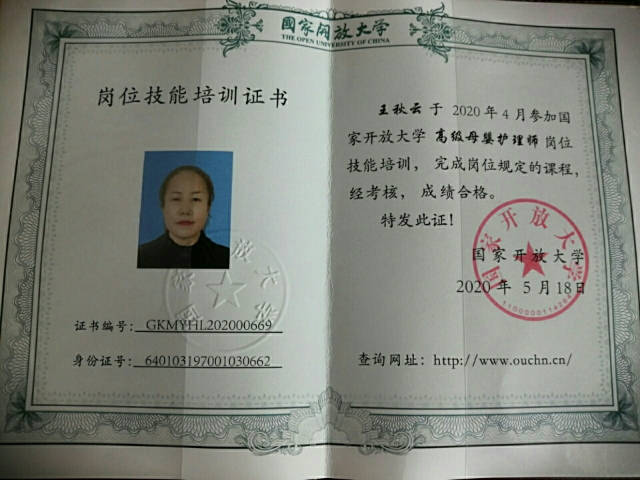 國家開放大学
THE OPEN UNIVERSITY OF CHINA
岗位技能培训证书
证书编号：GKMYHL202000669
身份证号：640103197001030662
王秋云于 2020 年 4 月参加国
家开放大学 高级母婴护理师 岗位
技能培训，完成岗位规定的课程，
经考核，成绩合格。
特发此证！
国家开放大学
2020 年 5 月 18日
国家开放大学
查询网址：http://www.ouchn.cn/